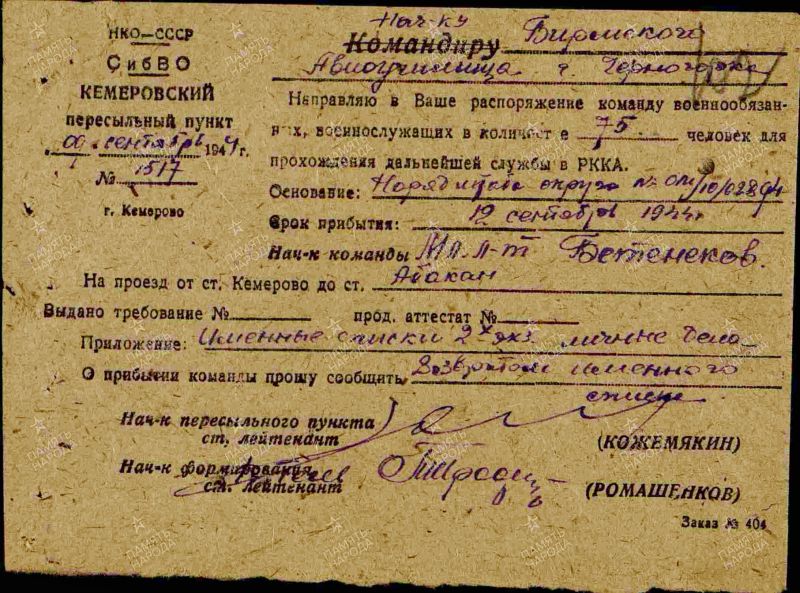 НКО—СССР
СибВО
КЕМЕРОВСКИЙ
пересыльный пункт
09 сентября 1944 г.
№ 1517
г. Кемерово
Нач-ку
Командиру Бирмского
Авиоучилища г. Черногорка
Направляю в Ваше распоряжение команду военнообязан-
ных, военнослужащих в количест е 75 человек для
прохождения дальнейшей службы в РККА.
Основание: округа № ом/10/02894
Срок прибытия: 12 сентября 1944г
Нач-к команды Мл. л-т Бетенеков.
На проезд от ст. Кемерово до ст. Абакан
Выдано требование № прод. аттестат №
Приложение: Именные списки 2х экз. личные дела
О прибытии команды прошу сообщить Возвратом именного
списка.
Нач-к пересыльного пункта
ст, лейтенант (КОЖЕМЯКИН)
Нач-к формирования
ст. лейтенант (РОМАШЕНКОВ)
Заказ № 404
ПАМЯТЬ НАРОДА